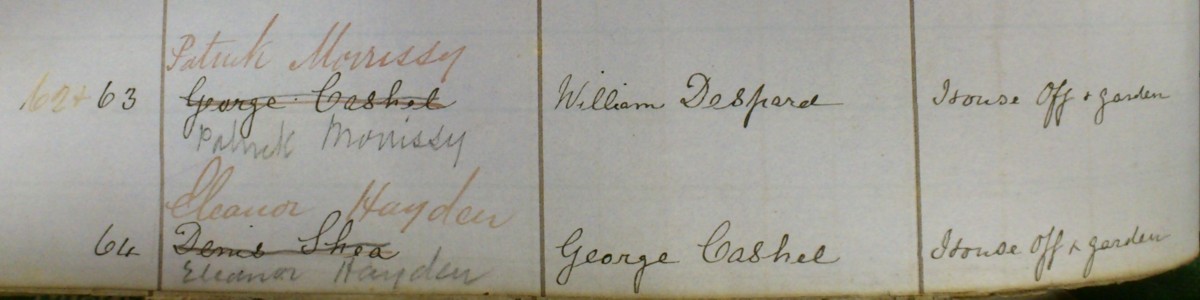 Patrick Morrissy
62+ 63 George Cashel William Despard House Off + garden
Patrick Morrissy
Eleanor Hayden
64 Denis Shea George Cashel House Off + garden
Eleanor Hayden